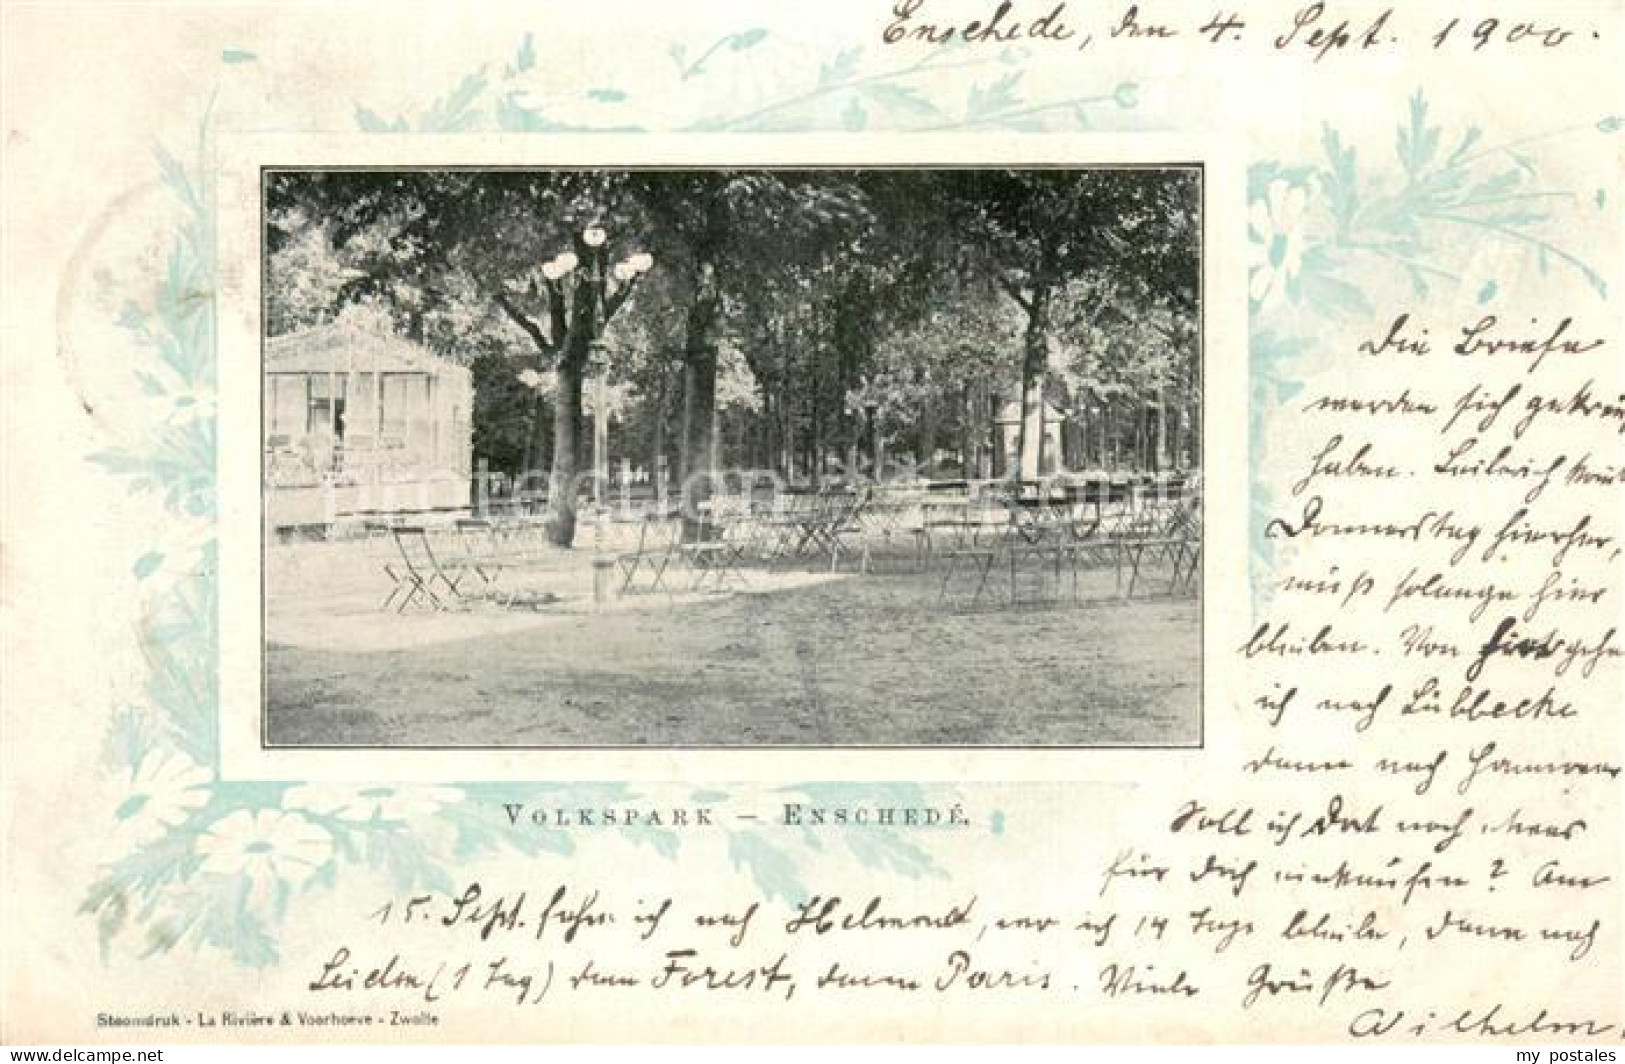 Enschede, den 4. Sept. 1900.
Die Briefe
werden sich gekreuzt
haben. Heilwich kommt
Donnerstag hierher,
muß solange hier
bleiben. Von hier gehe
ich nach Lübbecke
dann nach Hannover
Soll ich Dort noch etwas
für Dich einkaufen? Am
15. Sept. fahre ich nach Helmond, wo ich 14 Tage bleibe, dann nach
Leiden (1 Tag) dann Forest, dann Paris. Viele Grüße
Wilhelm.
VOLKSPARK — ENSCHEDÉ.
Stoomdruk - La Rivière & Voorhoeve - Zwolle
my postales